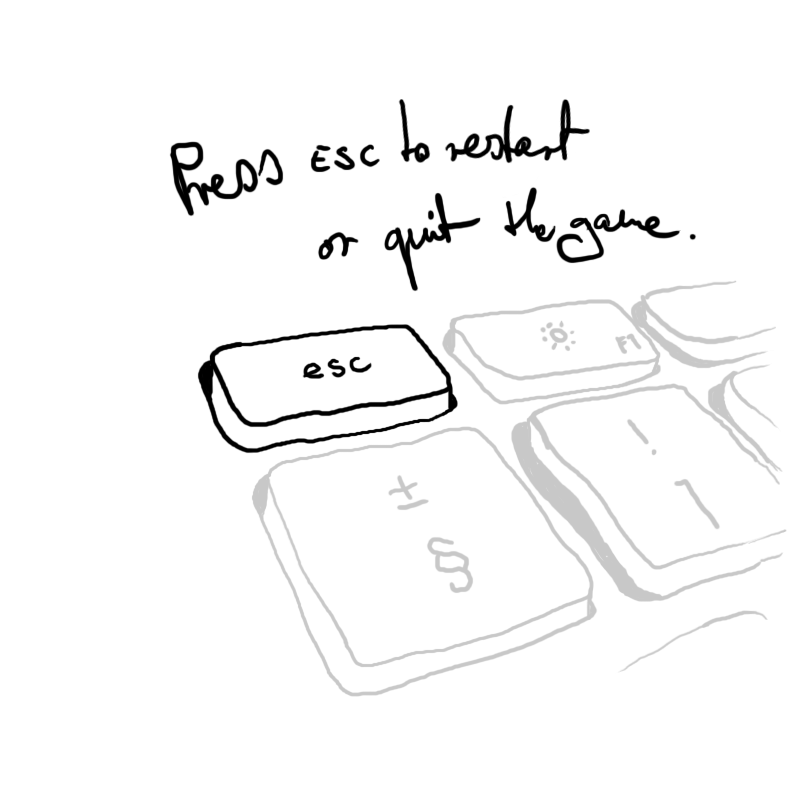 Press ESC to restart
or quit the game.
esc
F1
±
§
!
1